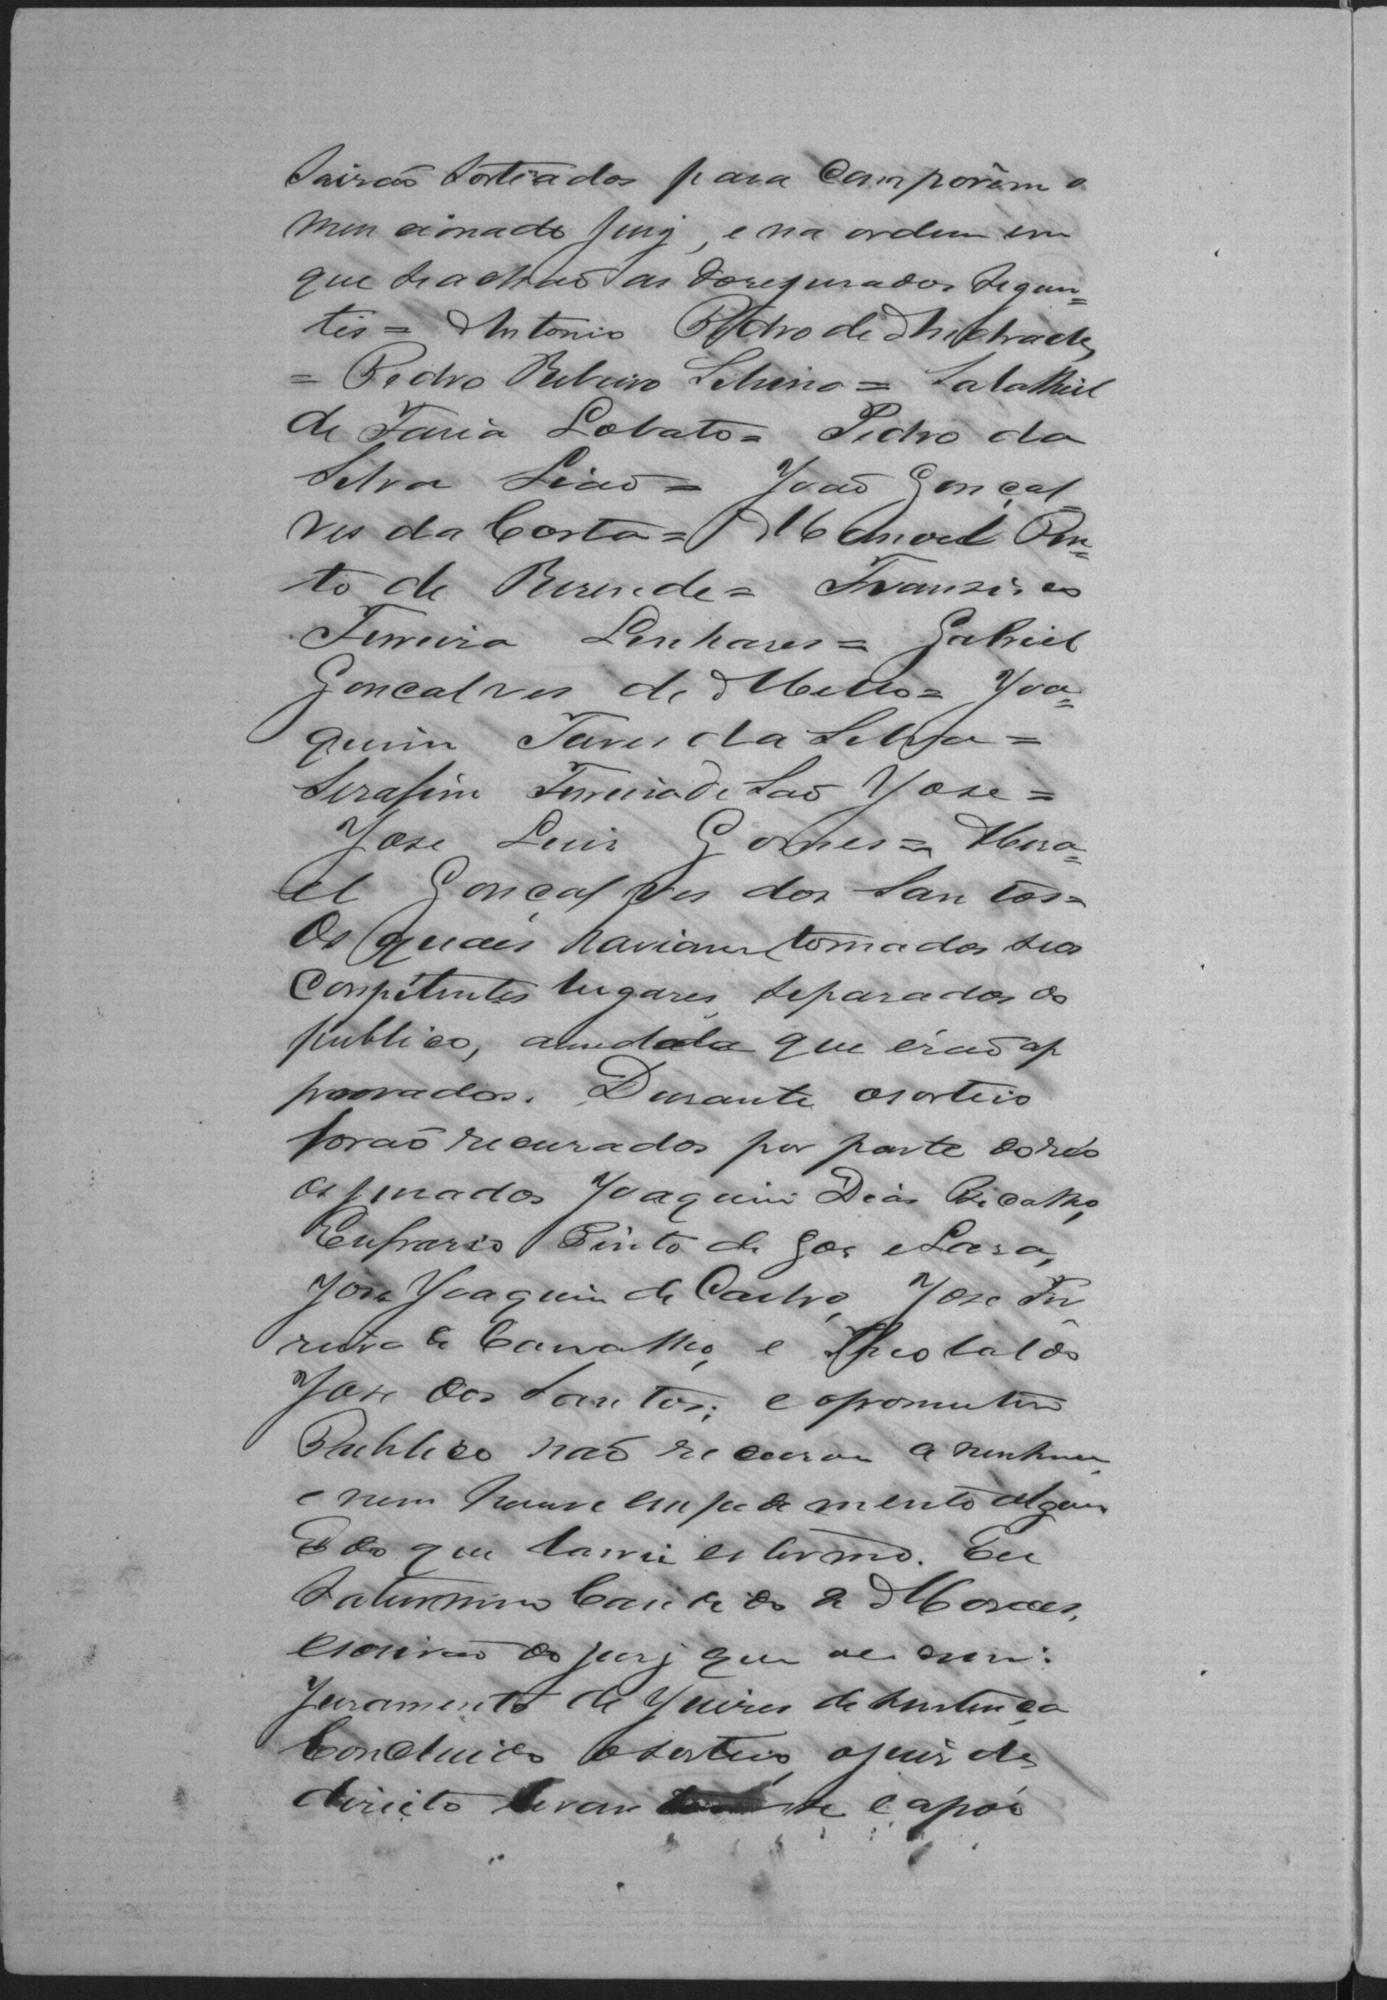 Sairaõ sorteados para comporêm o
mencionado jury, e na ordem em
que se achaõ os doze jurados seguin=
tes = Antonio Pedro de Andrade,
= Pedro Ribeiro Silvino = Salathiel
de Faria Lobato = Pedro da
Silva Leaõ = Joaõ Gonçal
ves da Costa = Manoel Pin=
to de Resende = Francisco
Ferreira Linhares = Gabriel
Goncalves de Mello = Joa=
quim Tares da Silva =
Serafim Ferreira de Saõ Jose =
Jose Luis Gomes =
el Gonçalves dos Santos =
Os quaes haviam tomados seos
Competentes lugares, separados do
publico, a medida que éraõ ap
provados. Durante o sorteio
foraõ recusados por parte do réo
os jurados Joaquim Dias Bicalho,
Eufrasio Pinto de Goes e Lara,
Jose Joaquim de Castro, Jose Fer
reira de Carvalho, e Theobaldo
Jose dos Santos; e o promutor
Publico naõ recusou a nenhum
e nem houve empedimento algum
Do que lavrei es termo. Eu
Saturnino Candido de Moraes,
escrivaõ do jury que escrevi:
Juramento de Juizes de sentença
Concluido o sorteio, o juis de
direito levantou se e apos